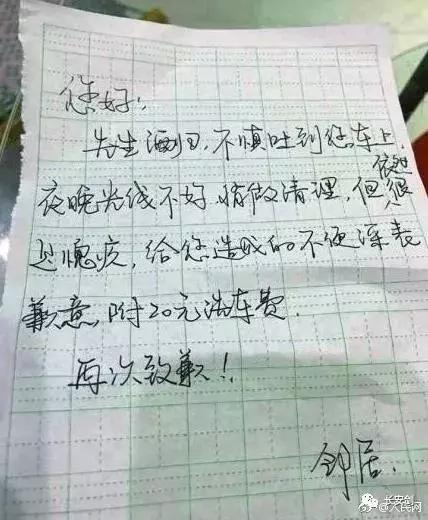 您好！
先生酒归，不慎吐到您车上，
夜晚光线不好，稍做清理，但很
是愧疚，给您造成的不便深表
歉意，附20元洗车费.
再次致歉！
邻居.
长安剑
@人民网